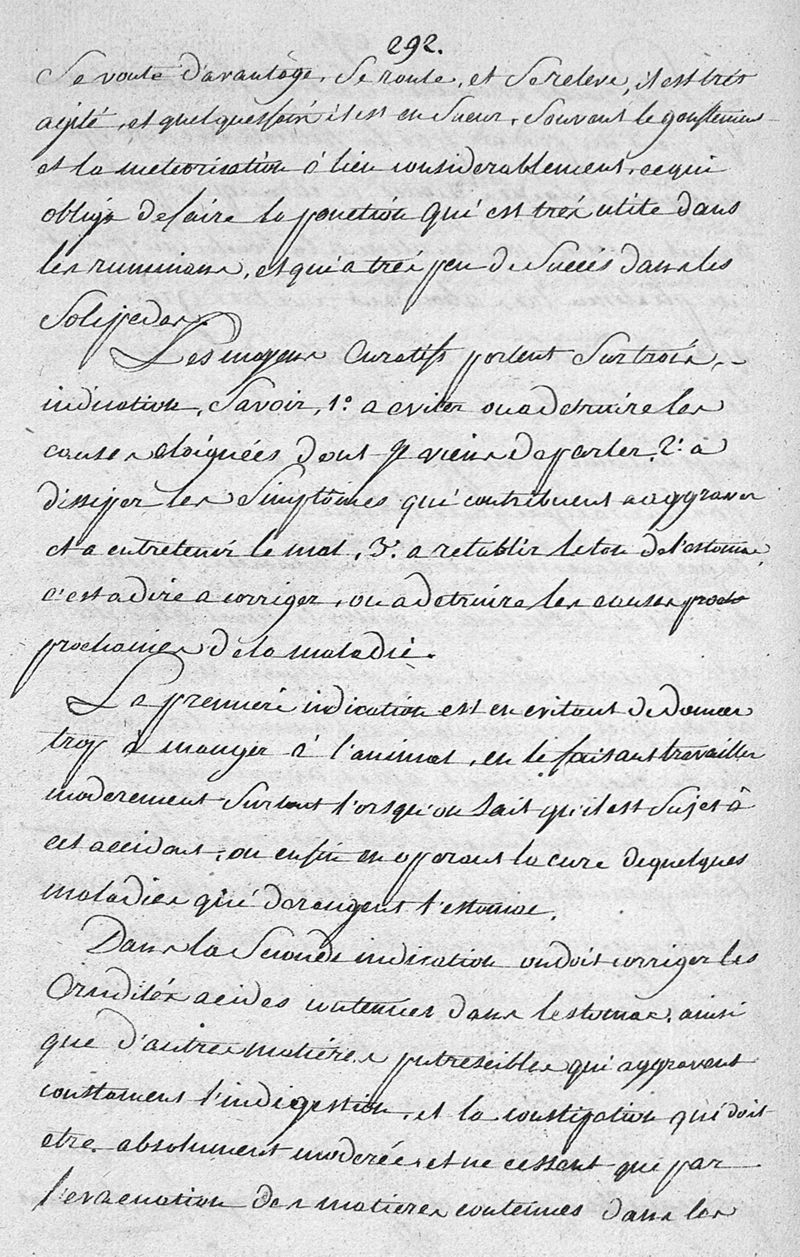 292.
Se voute d'avantage, Se roule, et Se releve, il est très
agité, et quelquesfois il est en Sueur, Souvent le gonflement
et la météorisation à lieu considerablement, ce qui
oblige de faire la ponction qui est tres utile dans
les ruminans, et qui a tres peu de Succès dans les
Solipedes.
Les moyens Curatifs portent Sur trois
indication, Savoir, 1.° a eviter ou a detruire les
causes eloignées dont je viens de parler, 2.° a
dissiper les Simptômes qui contribuent a aggraver
et a entretenir le mal, 3.° a retablir le ton de l'estomac
c'est a dire a corriger, ou a detruire les causes
prochaines de la maladie.
La premiere indication est en evitant de donner
trop à manger à l'animal, en le faisant travailler
moderement Surtout l'orsqu'on Sait qu'il est Sujet à
cet accident, ou enfin en operant la cure de quelques
maladies qui derangent l'estomac.
Dans la Seconde indication on doit corriger les
Crudités acides contenues dans lestomac, ainsi
que d'autres matières putrescibles qui aggravent
constament l'indigestion, et la constipation qui doit
etre absolument moderée, et ne cessent que par
l'evacuation des matieres contenues dans les